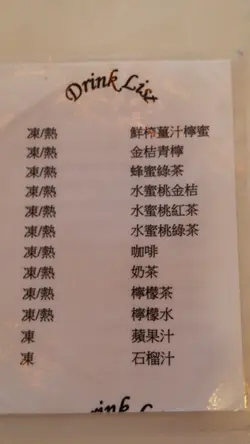 Drink List
凍/熱 鮮榨薑汁檸蜜
凍/熱 金桔青檸
凍/熱 蜂蜜綠茶
凍/熱 水蜜桃金桔
凍/熱 水蜜桃紅茶
凍/熱 水蜜桃綠茶
凍/熱 咖啡
凍/熱 奶茶
凍/熱 檸檬茶
凍/熱 檸檬水
凍 蘋果汁
凍 石榴汁
Drink List